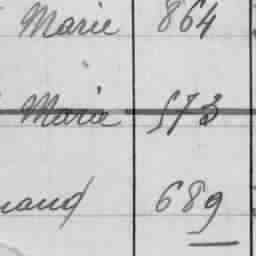 Marie 864
Marie 573
nand 689